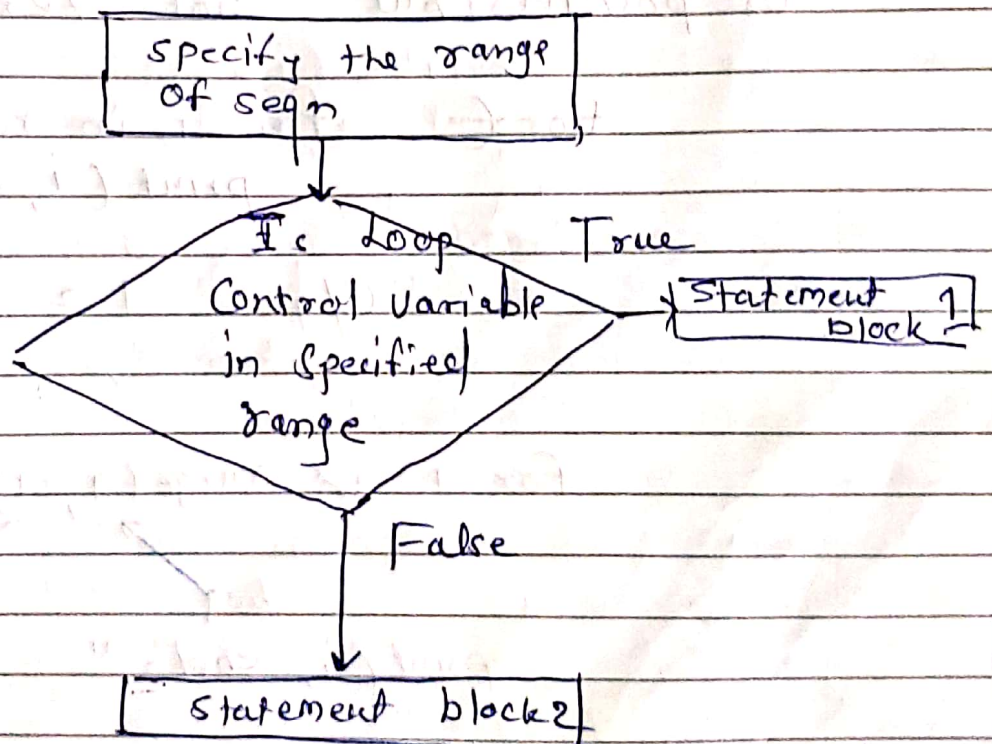 specify the range
of seqn
Is Loop
True
Control variable
in specified
range
Statement 1
block
False
statement block2